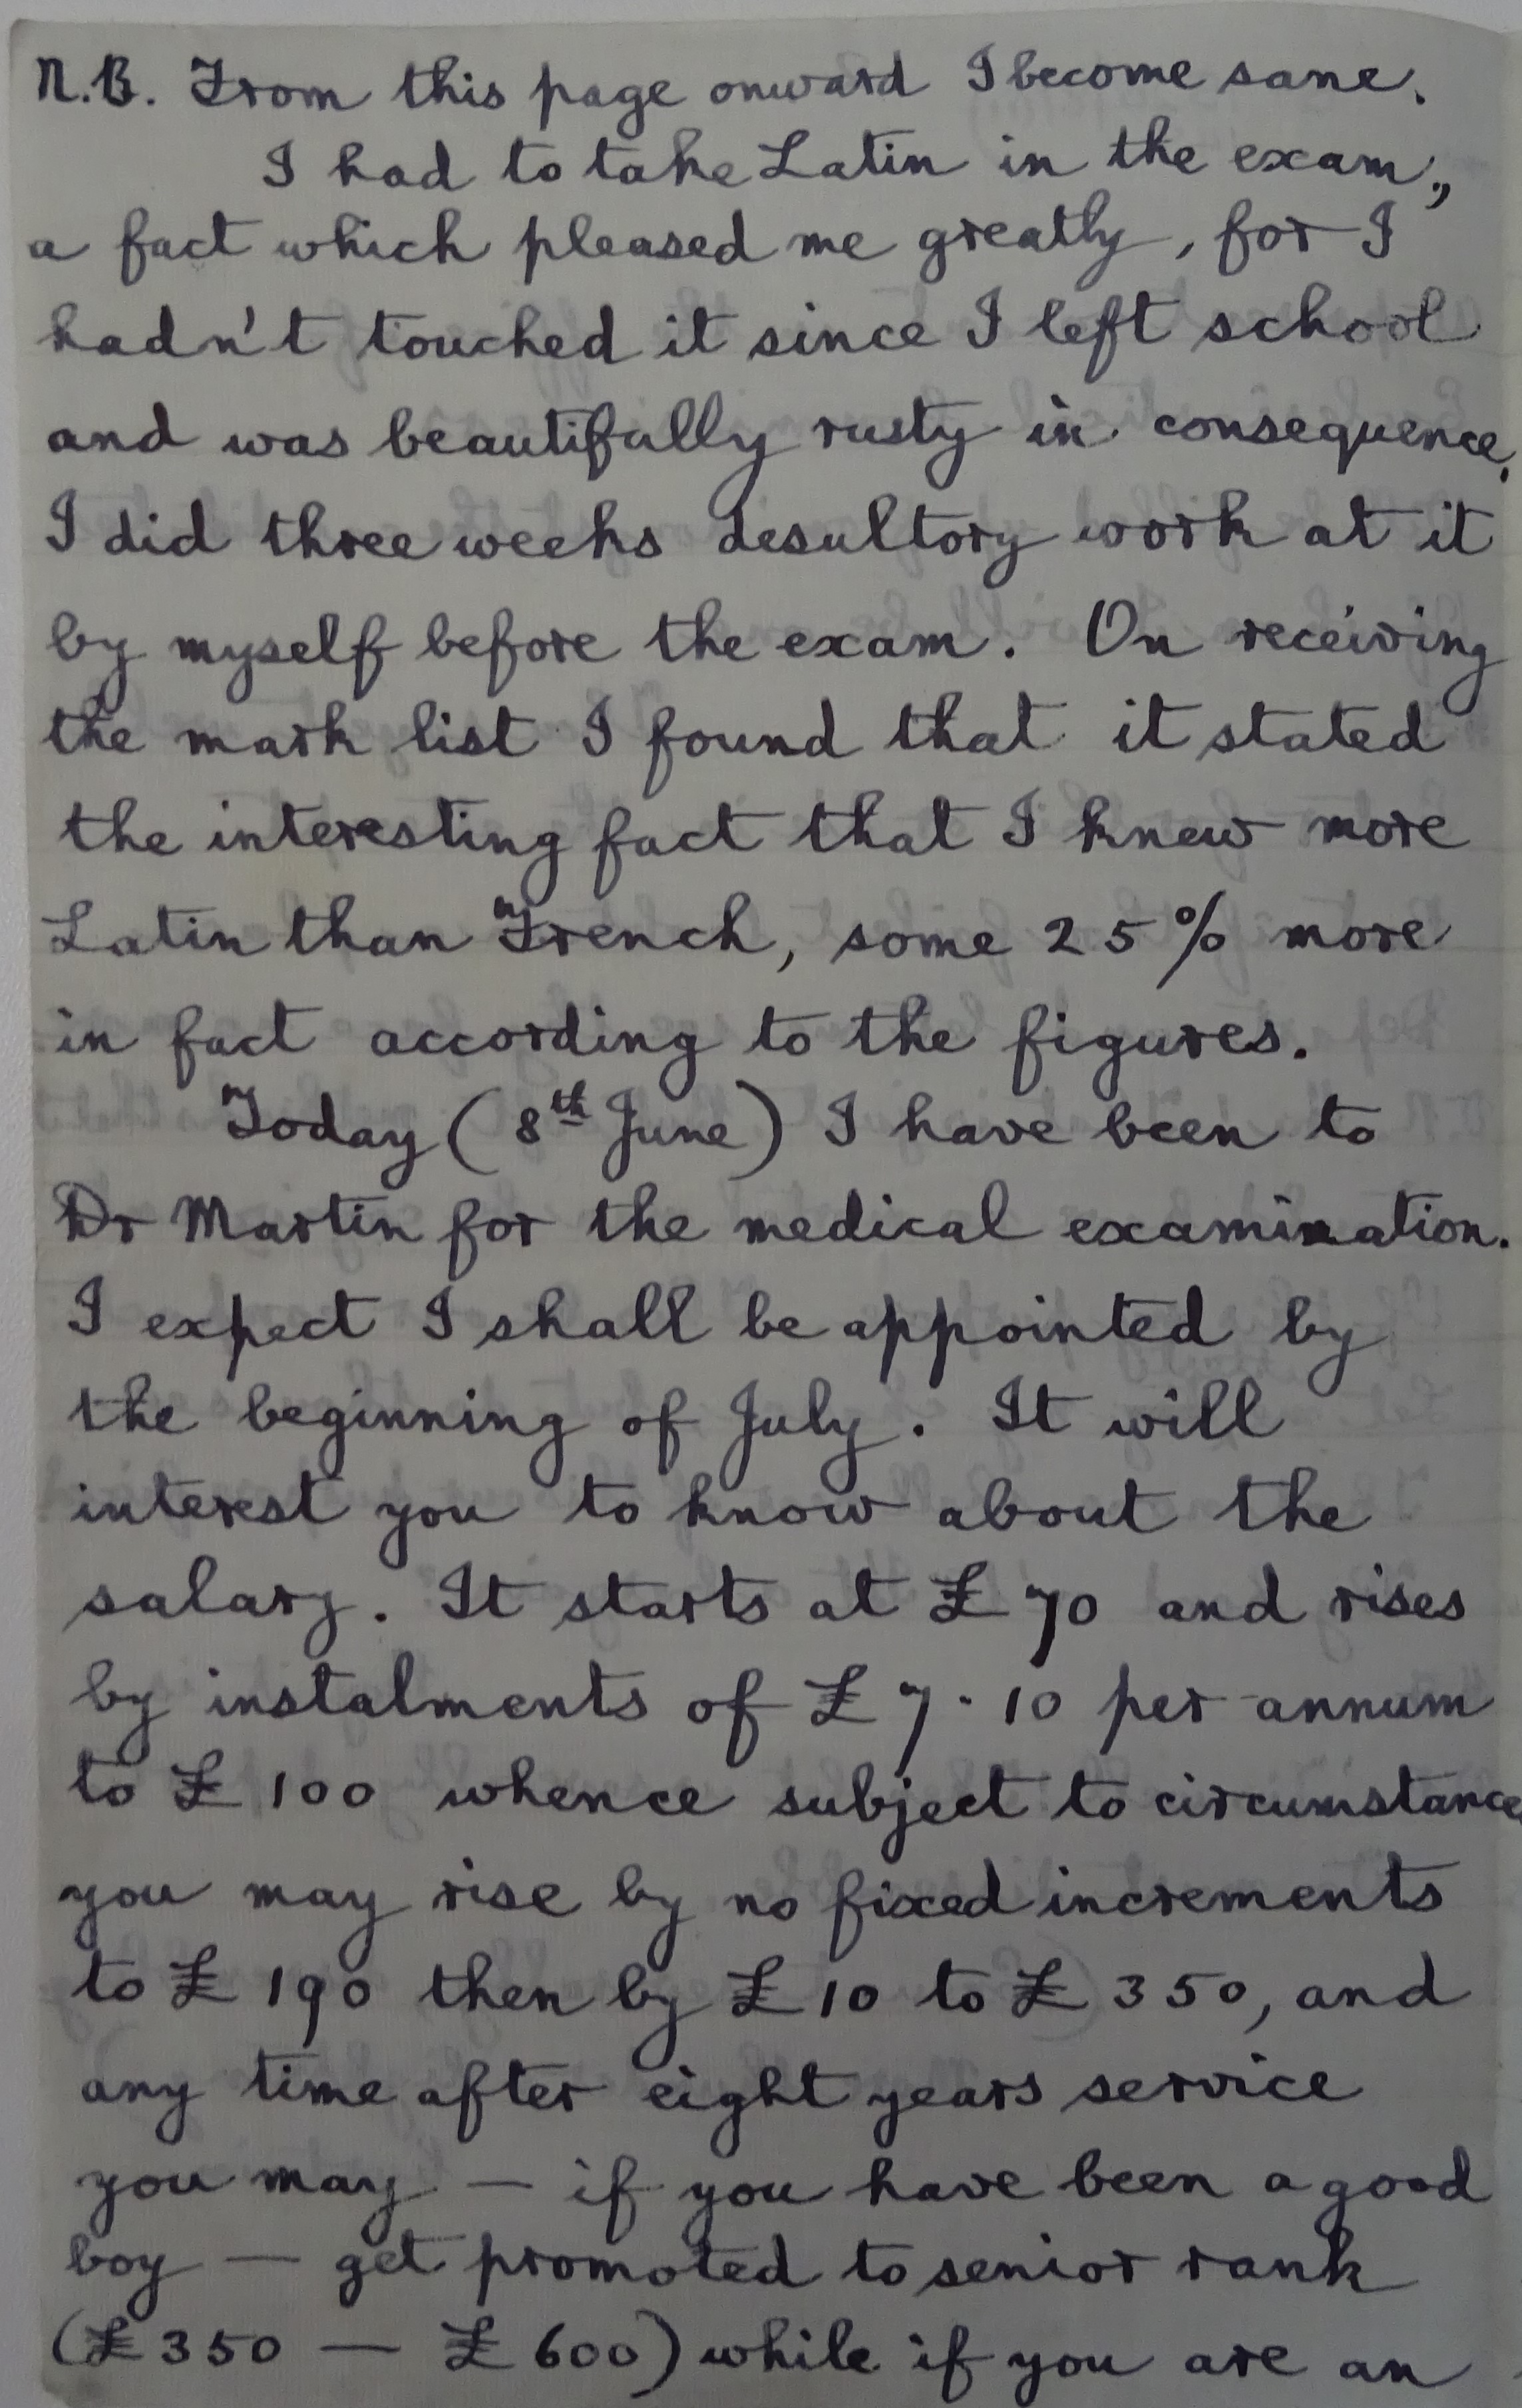 N.B. From this page onward I become sane.
I had to take Latin in the exam,,
a fact which pleased me greatly, for I
hadn't touched it since I left school
and was beautifully rusty in consequence.
I did three weeks desultory work at it
by myself before the exam. On receiving
the mark list I found that it stated
the interesting fact that I knew more
Latin than French, some 25% more
in fact according to the figures.
Today (8th June) I have been to
Dr Martin for the medical examination.
I expect I shall be appointed by
the beginning of July. It will
interest you to know about the
salary. It starts at £70 and rises
by instalments of £7.10 per annum
to £100 whence subject to circumstances
you may rise by no fixed increments
to £190 then by £10 to £350, and
any time after eight years service
you may — if you have been a good
boy — get promoted to senior rank
(£350 — £600) while if you are an